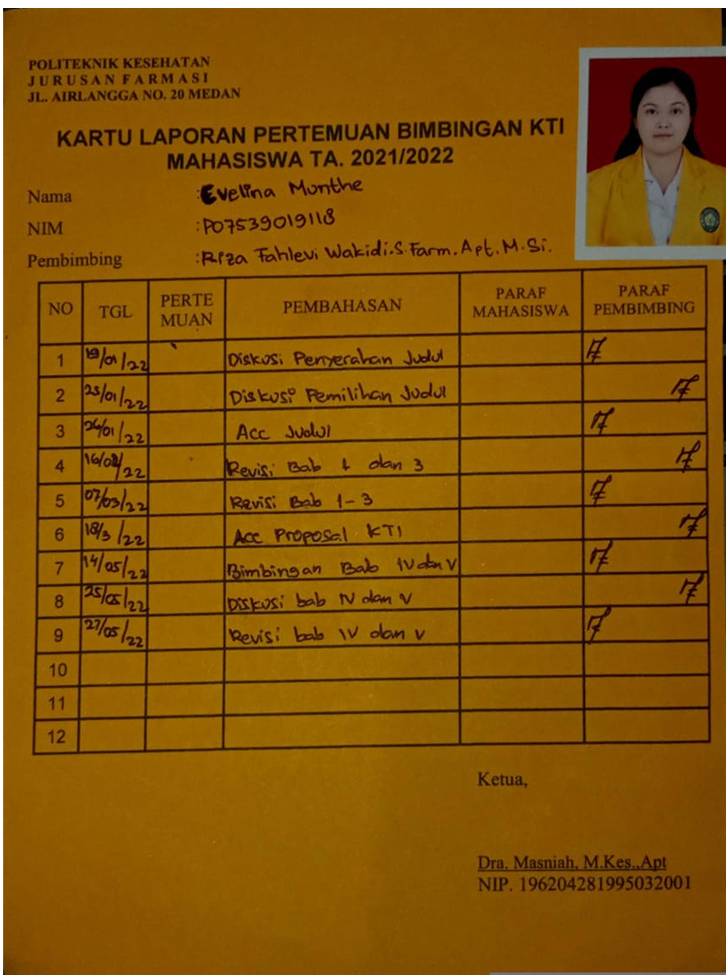 POLITEKNIK KESEHATAN
JURUSAN FARMASI
JL. AIRLANGGA NO. 20 MEDAN
KARTU LAPORAN PERTEMUAN BIMBINGAN KTI
MAHASISWA TA. 2021/2022
Nama :Evelina Munthe
NIM :P07539019118
Pembimbing :Riza Fahlevi Wakidi.S.Farm.Apt.M.Si.
NO TGL PERTE MUAN PEMBAHASAN PARAF MAHASISWA PARAF PEMBIMBING
1 19/01/22 Diskusi Penyerahan Judul
2 25/01/22 Diskusi Pemilihan Judul
3 26/01/22 Acc Judul
4 16/02/22 Revisi Bab 1 dan 3
5 07/03/22 Revisi Bab 1-3
6 18/3/22 Acc Proposal KTI
7 14/05/22 Bimbingan Bab IV dan V
8 25/05/22 Diskusi bab IV dan V
9 27/05/22 Revisi bab IV dan V
10
11
12
Ketua,
Dra. Masniah, M.Kes.,Apt
NIP. 196204281995032001